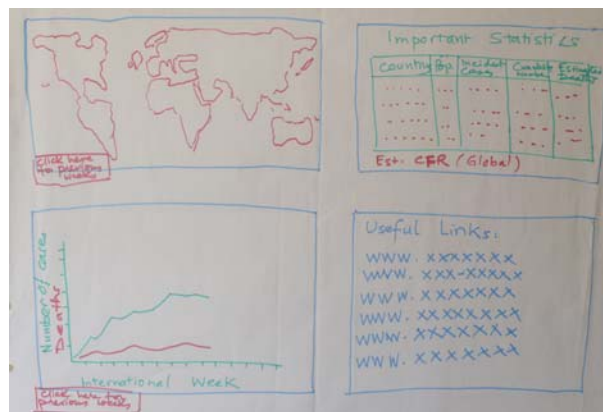 Click here
for previous
weeks
Important Statistics
Country Pop Incident Cases Estimated Deaths
Est. CFR (Global)
Number of Cases
Deaths
International Week
Click here for
previous weeks
Useful Links:
WWW. XXXXXXX
WWW. XXX-XXXXX
WWW. XXXXXXX
WWW. XXXXXXX
WWW. XXXXXXX
WWW. XXXXXXX